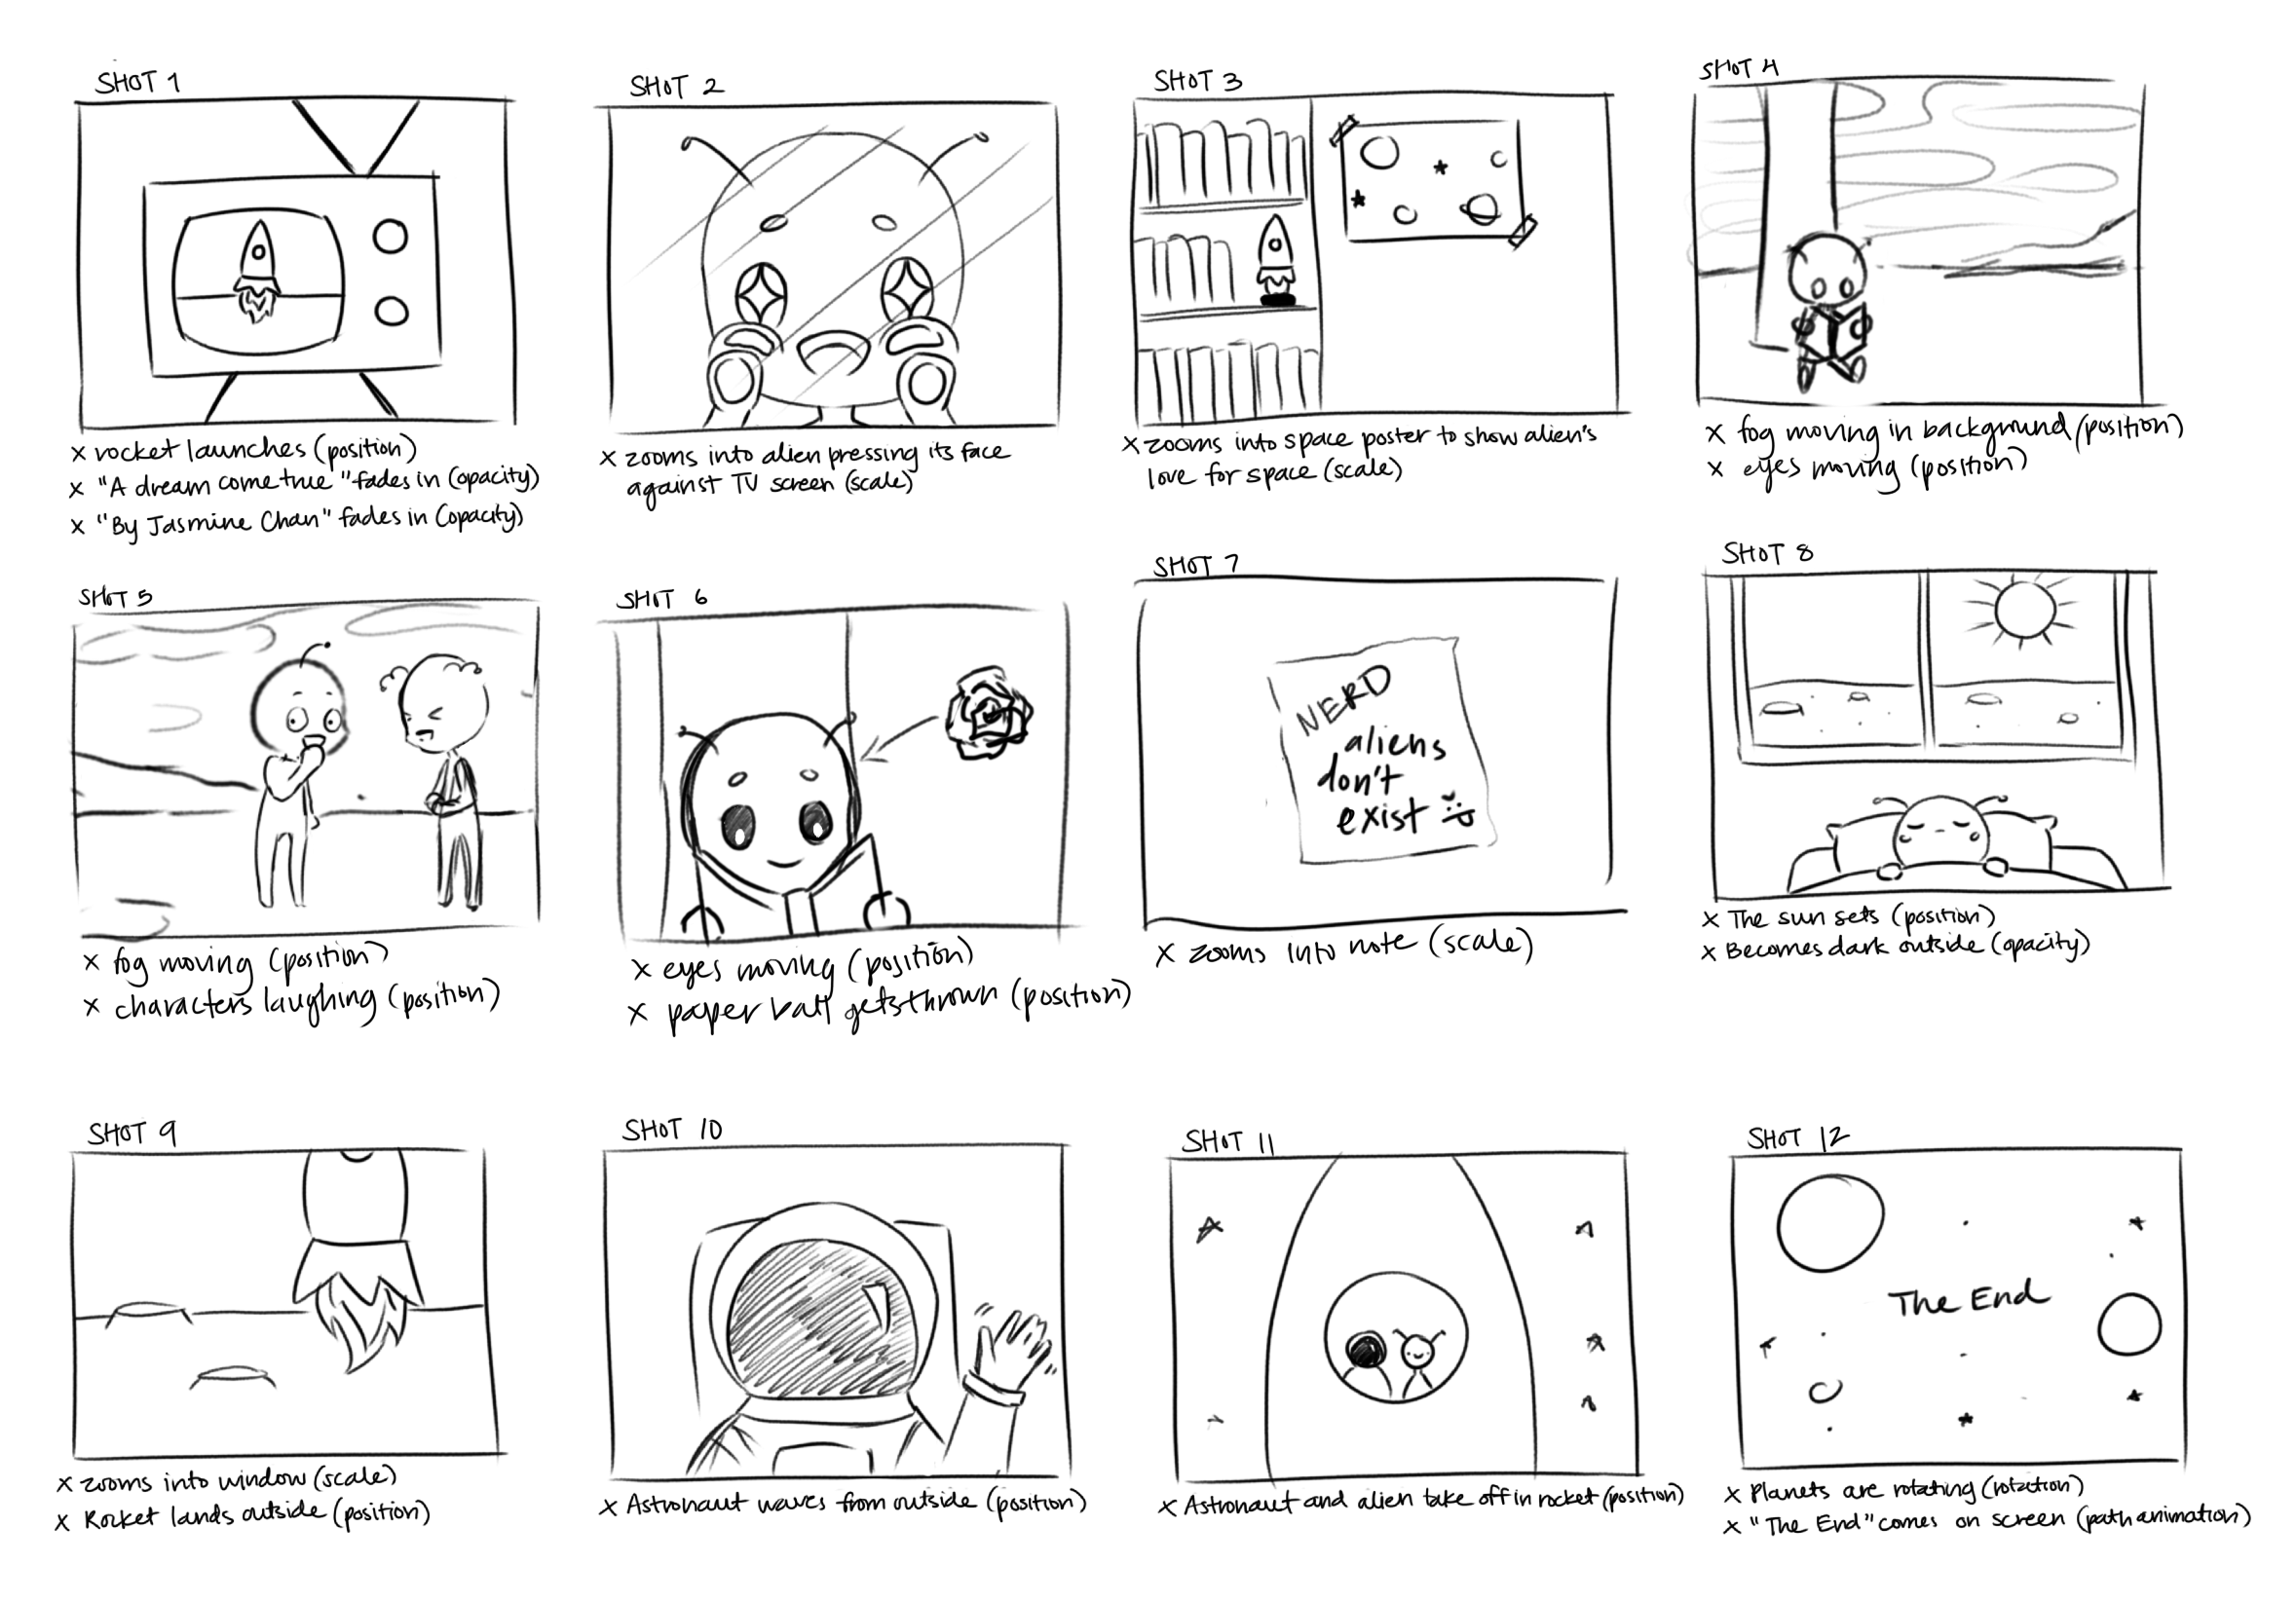 SHOT 1
x rocket launches (position)
x "A dream come true" fades in (opacity)
x "By Jasmine Chan" fades in (opacity)
SHOT 2
x zooms into alien pressing its face
against TV screen (scale)
SHOT 3
x zooms into space poster to show alien's
love for space (scale)
SHOT 4
x fog moving in background (position)
x eyes moving (position)
SHOT 5
x fog moving (position)
x characters laughing (position)
SHOT 6
x eyes moving (position)
x paper ball gets thrown (position)
SHOT 7
NERD
aliens
don't
exist
x zooms into note (scale)
SHOT 8
x The sun sets (position)
x Becomes dark outside (opacity)
SHOT 9
x zooms into window (scale)
x Rocket lands outside (position)
SHOT 10
x Astronaut waves from outside (position)
SHOT 11
x Astronaut and alien take off in rocket (position)
SHOT 12
The End
x Planets are rotating (rotation)
x "The End" comes on screen (path animation)